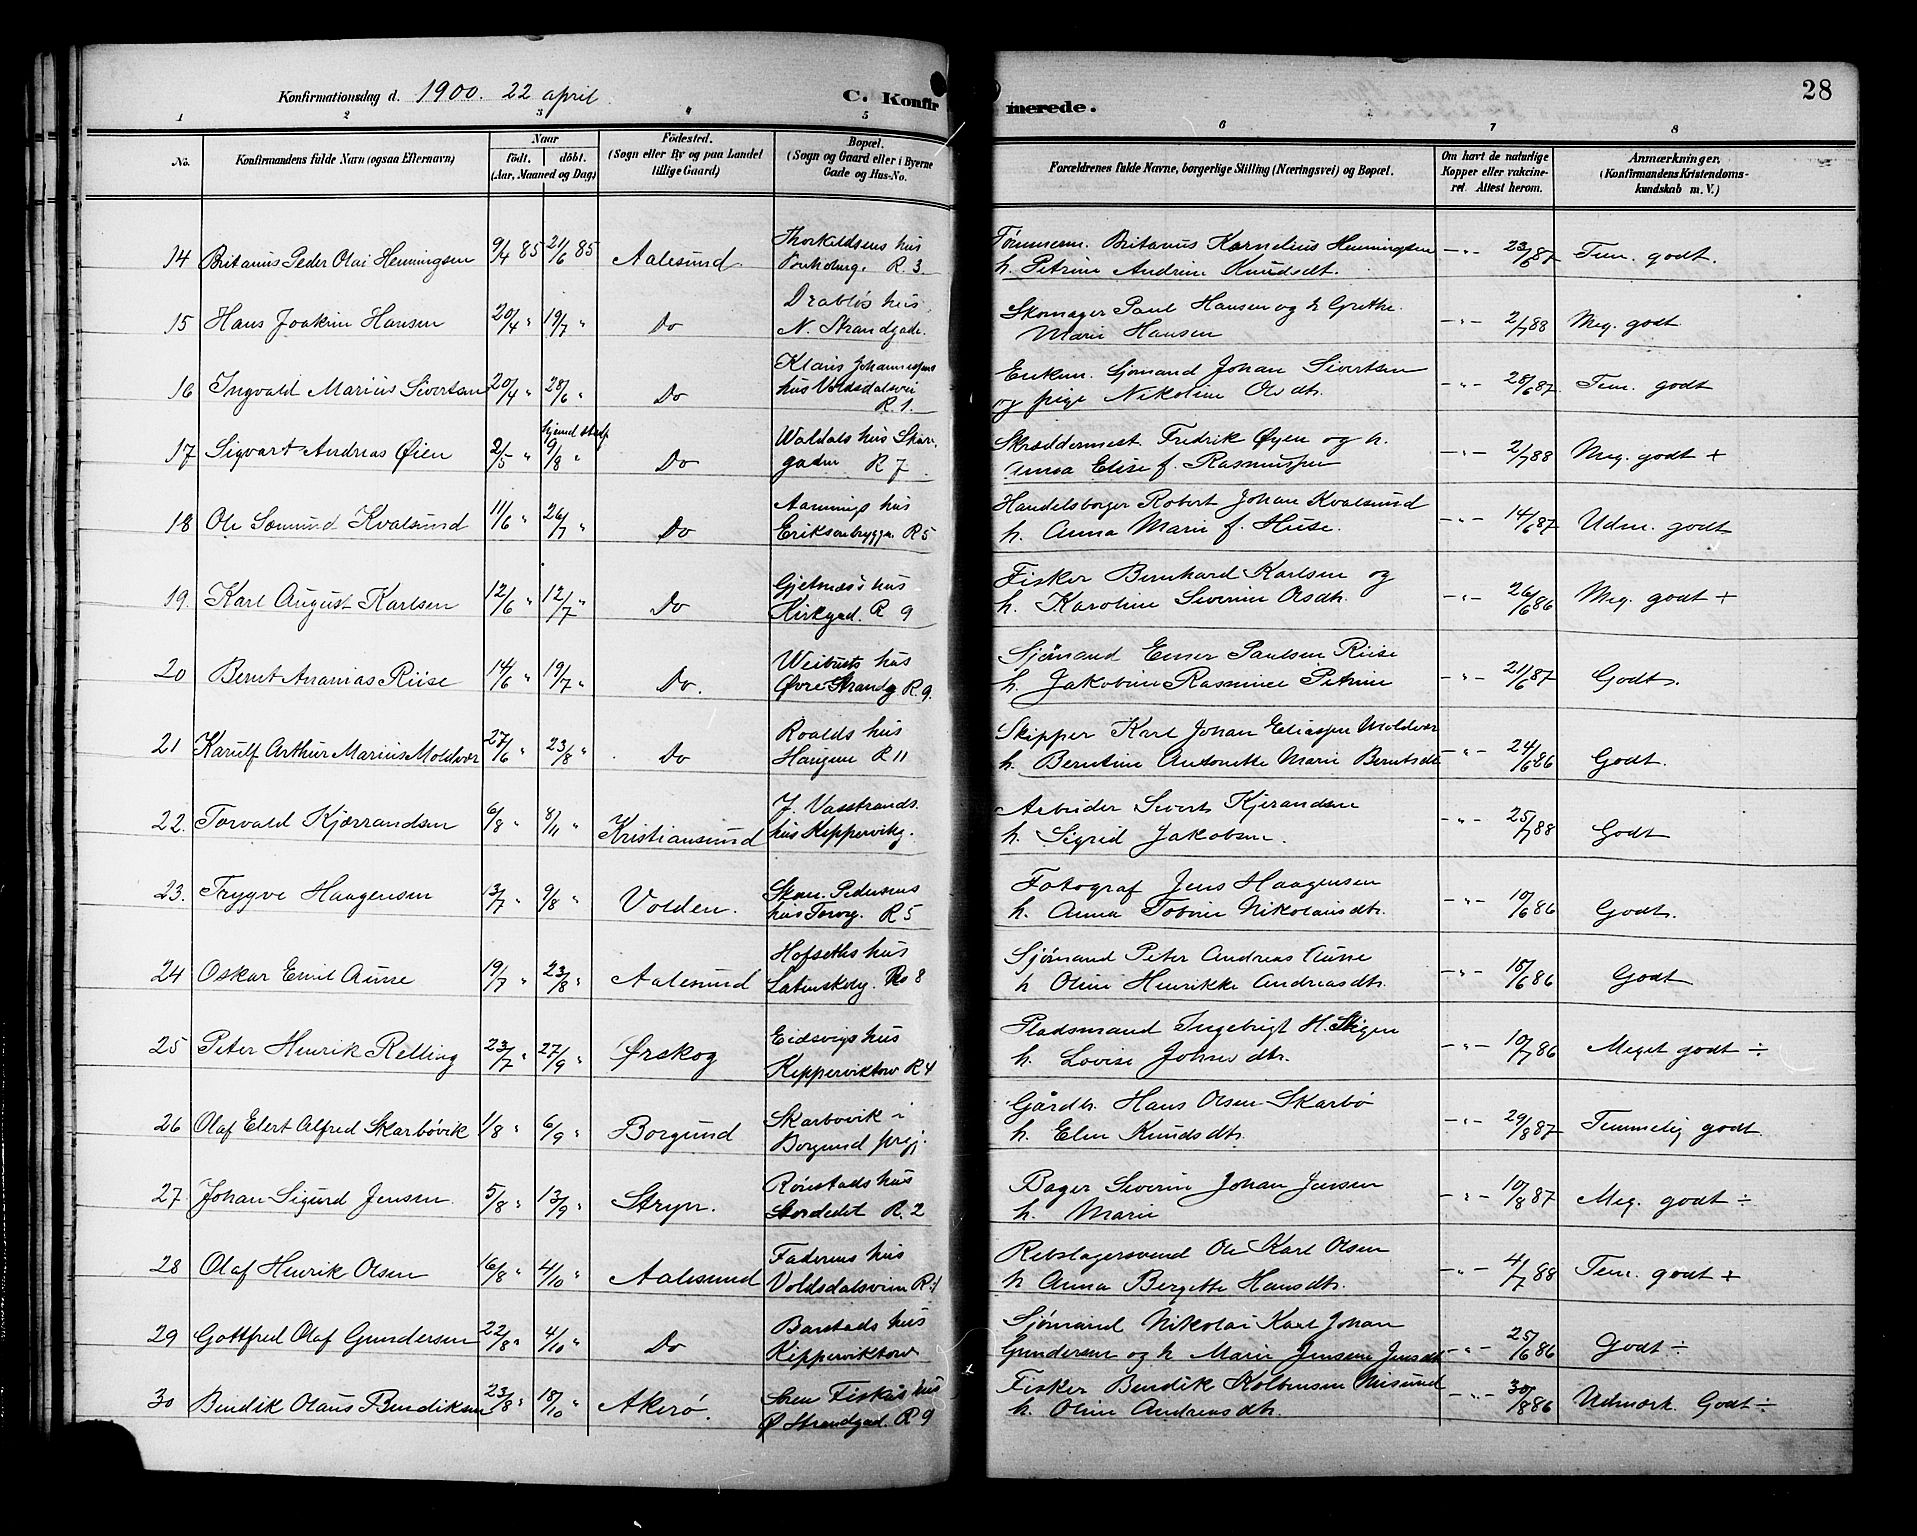 28
Konfirmationsdag d. 1900. 22 april.
C. Konfir merede.
1 2 3 4 5 6 7 8
No. Konfirmandens fulde Navn (ogsaa Efternavn) Naar födt. döbt. (Aar, Maaned og Dag) Födested. (Sogn eller By og paa Landet tillige Gaard) Bopæl. (Sogn og Gaard eller i Byerne Gade og Hus-No. Forældrenes fulde Navne, borgerlige Stilling (Næringsvei) og Bopæl. Om havt de naturlige Kopper eller vakcineret. Attest herom. Anmærkninger. (Konfirmandens Kristendomskundskab m. V.)
Thorkildsens hus
14 Britanus Peder Olai Henningsen 9/4 85 21/6 85 Aalesund R. 3 Britanus Kornelius Henningsen -"- 23/6 87 Tem. godt.
h. Petrine Andrine Knudsdt.
Drabløs hus
15 Hans Joakim Hansen 20/4 " 19/7 " Do N. Strandgade. Skomager Paul Hansen og h Grethe -"- 2/7 88 Meg. godt
Marie Hansen
Klaus Johannessens
16 Ingvald Marius Sivertsen 20/4 " 28/6 " Do hus Voldsdalsvei Enkem. Sjømand Johan Sivertsen -"- 28/6 87 Tem. godt
R 1. og pige Nikoline Olsdtr.
hjemd. stadf.
17 Sigvart Andreas Øien 2/5 " 9/8 " Do Waldals hus Skar- Skræddermest. Fredrik Øyen og h. -"- 2/7 88 Meg. godt +
gaden R 7 Anna Elise f. Rasmussen
Aannings hus
18 Ole Sæmund Kvalsund 11/6 " 26/7 " Do Eriksenbryggen R 5 Handelsborger Robert Johan Kvalsund -"- 14/6 87 Udm. godt
h. Anna Marie f. Huse.
Gjelmæs's hus
19. Karl August Karlsen 12/6 " 12/7 " Do Kirkgad. R 9 Fisker Bernhard Karlsen og -"- 26/6 86 Meg. godt +
h. Karoline Severine Olsdtr.
Weibusts hus
20 Bernt Ananias Riise 14/6 " 19/7 " Do. Øvre Strandg R 9. Sjømand Elmer Paulsen Riise -"- 21/6 87 Godt.
h. Jakobine Rasmine Petrine
Roalds hus
21 Karulf Arthur Marius Moldvær 27/6 " 23/8 " Do Haugen R 11 Skipper Karl Johan Eliassen Moldvær -"- 24/6 86 Godt.
h. Berntine Antonette Marie Berntsdtr
J. Vasstrands
22. Torvald Kjærrandsen 6/8 " 8/11 " Kristiansund hus Keppervikg. Arbeider Sivert Kjerandsen -"- 25/7 88 Godt
h. Sigrid Jakobsen.
Skom. Pedersens
23. Trygve Haagensen 13/7 " 9/8 " Volden. hus Torvg. R 5 Fotograf Jens Haagensen -"- 10/6 86 Godt.
h. Anna Tobine Nikolaisdtr.
Hofseths hus
24 Oskar Emil Aurse 19/7 " 23/8 " Aalesund Latinskolg. Ro 8 Sjømand Peter Andreas Aurse -"- 15/6 86 Godt
h Oline Henrikke Andreasdtr.
Eidsvigs hus
25 Peter Henrik Relling 23/7 " 27/9 " Ørskog Kepperviktorv R 4 Pladsmand Ingebrigt H. Stigen -"- 10/7 86 Meget godt ÷
h. Lovise Johnsdtr.
Skarbovik i
26 Olaf Elert Alfred Skarbøvik 1/8 " 6/9 " Borgund Borgund prgj. Gårdbr. Hans Olsen Skarbø -"- 29/8 87 Temmelig godt.
h. Elen Knudsdtr.
Rønstads hus
27. Johan Sigurd Jensen 5/8 " 13/9 " Stryn. Stordedet R. 2 Bager Severin Johan Jensen -"- 10/8 87 Meg. godt ÷
h. Marie
Faderens hus
28 Olaf Henrik Olsen 16/8 " 4/10 " Aalesund Voldsdalsveien R. 1 Rebslagersvend Ole Karl Olsen -"- 4/7 88 Tem. godt +
h Anna Bergette Hansdtr.
Barstads hus
29 Gottfred Olaf Gundersen 22/8 " 4/10 " Do Kipperviktorv Sjømand Nikolai Karl Johan -"- 25/6 86 Godt ÷
Gundersen og h Marie Jensine Jensdtr
30 Bendik Olaus Bendiksen 23/8 " 18/10 " Akerø. Fiskers hus Fisker Bendik Kolbensen Misund -"- 30/8 86 Udmærk. Godt ÷
Ø Strandgad. R 9 h. Oline Andreasdtr.